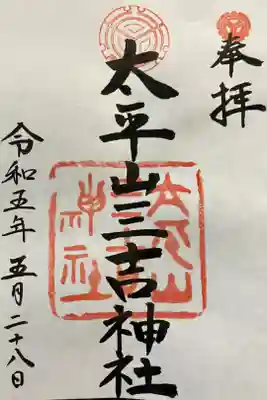 奉拝
太平山三吉神社
太平山三吉神社
令和五年五月二十八日